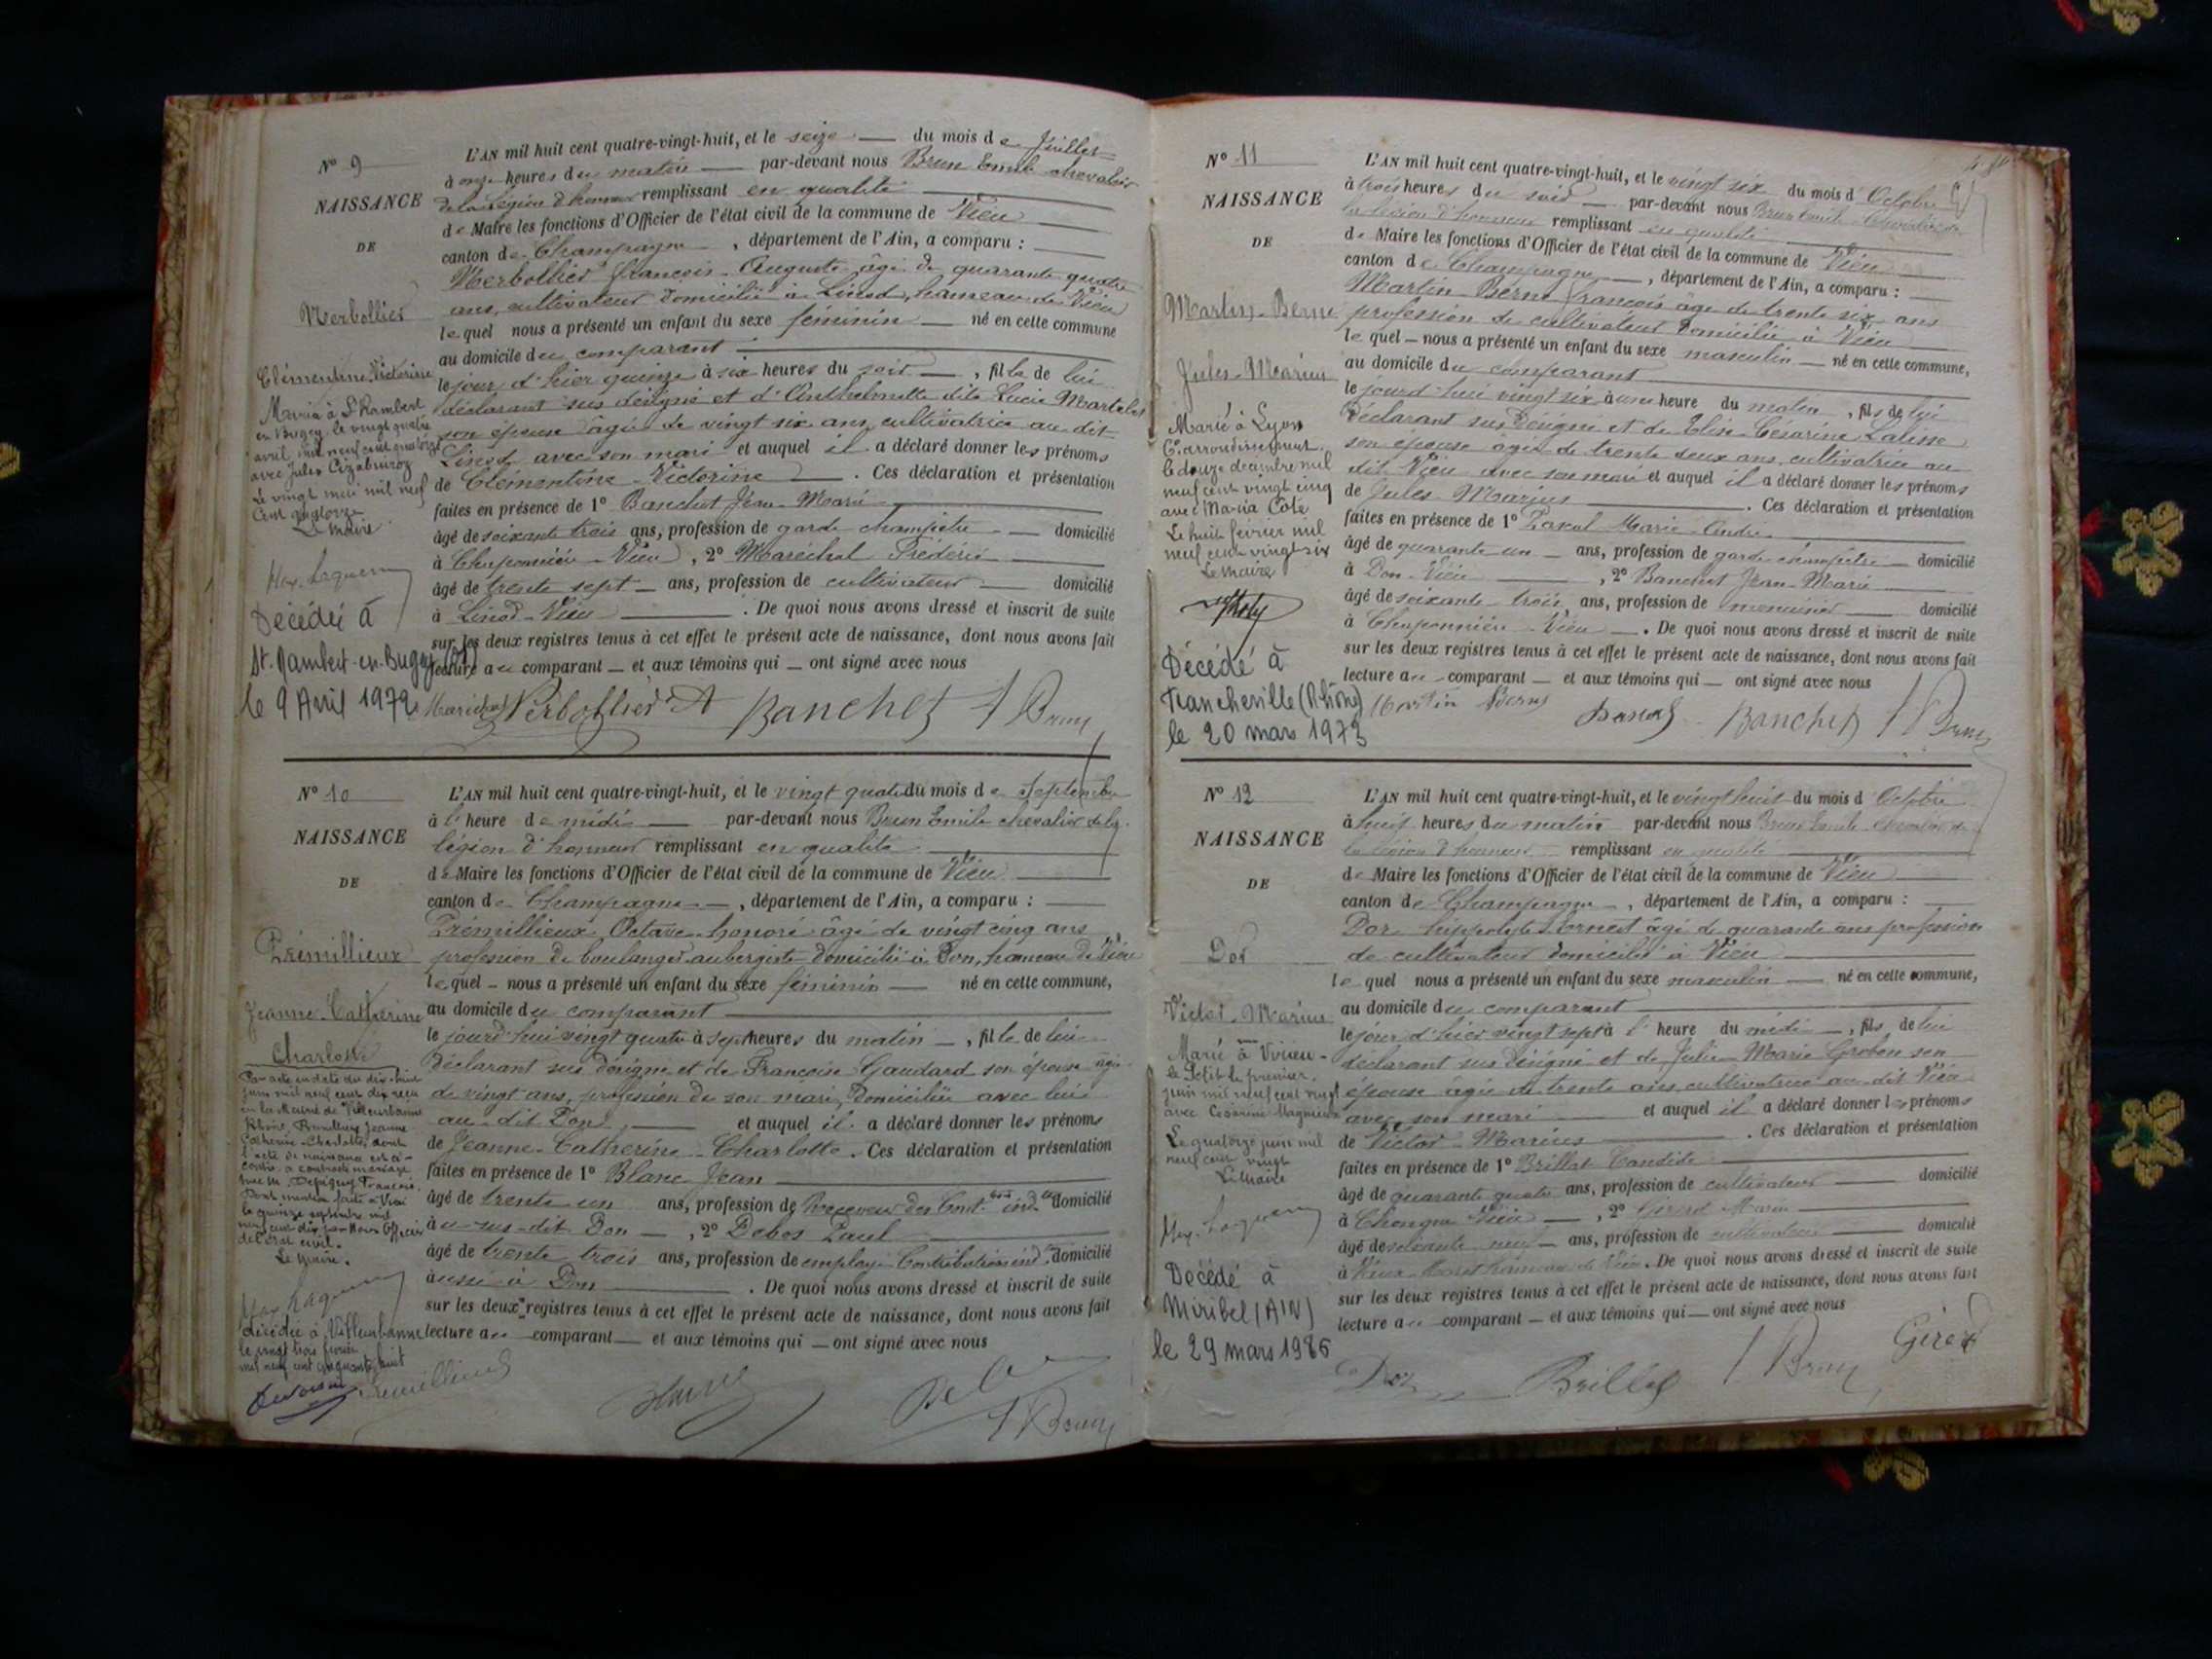 N° 9
NAISSANCE
DE
Verbollier
Clémentine Victorine
Mariée à St Rambert
en Bugey le vingt quatre
avril mil neuf cent quatorze
avec Jules Cizabuiroz
Le vingt mai mil neuf
cent quatorze
Le Maire
Décédée à
St. Rambert-en-Bugey
le 9 Avril 1972
L'AN mil huit cent quatre-vingt-huit, et le seize du mois de Juillet
à onze heures du matin par-devant nous Brun Emile chevalier
de la Légion d'honneur remplissant en qualité
de Maire les fonctions d'Officier de l'état civil de la commune de Vieu
canton de Champagne, département de l'Ain, a comparu :
Verbollier françois Auguste âgé de quarante quatre
ans, cultivateur domicilié à Linod, hameau de Vieu
lequel nous a présenté un enfant du sexe féminin né en cette commune
au domicile du comparant
le jour d'hier quinze à six heures du soir, fille de lui
déclarant sus désigné et d'Anthelmette dite Lucie Martelet
son épouse âgée de vingt six ans, cultivatrice au dit
Linod avec son mari et auquel il a déclaré donner les prénoms
de Clémentine Victorine. Ces déclaration et présentation
faites en présence de 1° Banchet Jean-Marie
âgé de soixante trois ans, profession de garde champêtre domicilié
à Chaponnière Vieu, 2° Maréchal Frédéric
âgé de trente sept ans, profession de cultivateur domicilié
à Linod-Vieu. De quoi nous avons dressé et inscrit de suite
sur les deux registres tenus à cet effet le présent acte de naissance, dont nous avons fait
lecture au comparant et aux témoins qui ont signé avec nous
Maréchal Verbollier A Banchet Brun
N° 10
NAISSANCE
DE
Prémillieux
Jeanne Catherine
Charlotte
Par acte en date du dix-huit
juin mil neuf cent dix reçu
en la Mairie de Villeurbanne
Rhône, Prémillieux Jeanne
Catherine Charlotte, dont
l'acte de naissance est ci-
contre a contracté mariage
avec M. Depigny François.
Dont mention faite à Vieu
le quinze septembre mil
neuf cent dix par Nous Officier
de l'état civil.
Le Maire.
décédée à Villeurbanne
le vingt trois février
mil neuf cent cinquante huit
L'AN mil huit cent quatre-vingt-huit, et le vingt quatre du mois de Septembre
à l'heure de midi par-devant nous Brun Emile chevalier de la
légion d'honneur remplissant en qualité
de Maire les fonctions d'Officier de l'état civil de la commune de Vieu
canton de Champagne, département de l'Ain, a comparu :
Prémillieux Octave honoré âgé de vingt cinq ans
profession de boulanger aubergiste domicilié à Don, hameau de Vieu
lequel nous a présenté un enfant du sexe féminin né en cette commune,
au domicile du comparant
le jourd'hui vingt quatre à sept heures du matin, fille de lui
déclarant sus désigné et de Françoise Gaudard son épouse âgée
de vingt ans, profession de son mari, domiciliée avec lui
au dit Don, et auquel il a déclaré donner les prénoms
de Jeanne-Catherine-Charlotte. Ces déclaration et présentation
faites en présence de 1° Blanc Jean
âgé de trente un ans, profession de Receveur des Cont.ons ind.tes domicilié
à u sus-dit Don, 2° Debos Paul
âgé de trente trois ans, profession de employé Contributions ind.tes domicilié
aussi à Don. De quoi nous avons dressé et inscrit de suite
sur les deux registres tenus à cet effet le présent acte de naissance, dont nous avons fait
lecture au comparant et aux témoins qui ont signé avec nous
Prémillieux
Brun
N° 11
NAISSANCE
DE
Martin-Berne
Jules-Marius
Marié à Lyon
6e arrondissement
le douze décembre mil
neuf cent vingt cinq
avec Maria Côte
Le huit février mil
neuf cent vingt six
Le maire
Décédé à
Francheville (Rhône)
le 20 mars 1973
L'AN mil huit cent quatre-vingt-huit, et le vingt six du mois d'Octobre
à trois heures du soir par-devant nous Brun Emile Chevalier de
la légion d'honneur remplissant en qualité
de Maire les fonctions d'Officier de l'état civil de la commune de Vieu
canton de Champagne, département de l'Ain, a comparu :
Martin-Berne françois âgé de trente six ans
profession de cultivateur domicilié à Vieu
lequel nous a présenté un enfant du sexe masculin né en cette commune,
au domicile du comparant
le jourd'hui vingt six à une heure du matin, fils de lui
déclarant sus désigné et de Elise Césarine Lalisse
son épouse âgée de trente deux ans, cultivatrice au
dit Vieu avec son mari et auquel il a déclaré donner les prénoms
de Jules Marius. Ces déclaration et présentation
faites en présence de 1° Pascal Marie-André
âgé de quarante un ans, profession de garde champêtre domicilié
à Don-Vieu, 2° Banchet Jean-Marie
âgé de soixante trois ans, profession de menuisier domicilié
à Chaponnière Vieu. De quoi nous avons dressé et inscrit de suite
sur les deux registres tenus à cet effet le présent acte de naissance, dont nous avons fait
lecture au comparant et aux témoins qui ont signé avec nous
Martin Berne Pascal Banchet Brun
N° 12
NAISSANCE
DE
Dor
Victor-Marius
Marié à Virieu-
le Petit le premier
juin mil neuf cent vingt
avec Césarine Magnieux
Le quatorze juin mil
neuf cent vingt
Le Maire
Décédé à
Miribel (AIN)
le 29 mars 1986
L'AN mil huit cent quatre-vingt-huit, et le vingt huit du mois d'Octobre
à huit heures du matin par-devant nous Brun Emile Chevalier de
la légion d'honneur remplissant en qualité
de Maire les fonctions d'Officier de l'état civil de la commune de Vieu
canton de Champagne, département de l'Ain, a comparu :
Dor hippolyte Ernest âgé de quarante ans profession
de cultivateur domicilié à Vieu
lequel nous a présenté un enfant du sexe masculin né en cette commune,
au domicile du comparant
le jour d'hier vingt sept à l'heure du midi, fils de lui
déclarant sus désigné et de Julie Marie Grobon son
épouse âgée de trente ans, cultivatrice au dit Vieu
avec son mari et auquel il a déclaré donner les prénoms
de Victor Marius. Ces déclaration et présentation
faites en présence de 1° Brillat Candide
âgé de quarante quatre ans, profession de cultivateur domicilié
à Chongnes Vieu, 2° Girod
âgé de soixante neuf ans, profession de cultivateur domicilié
à hameau de Vieu. De quoi nous avons dressé et inscrit de suite
sur les deux registres tenus à cet effet le présent acte de naissance, dont nous avons fait
lecture au comparant et aux témoins qui ont signé avec nous
Dor Brillat Brun Girod